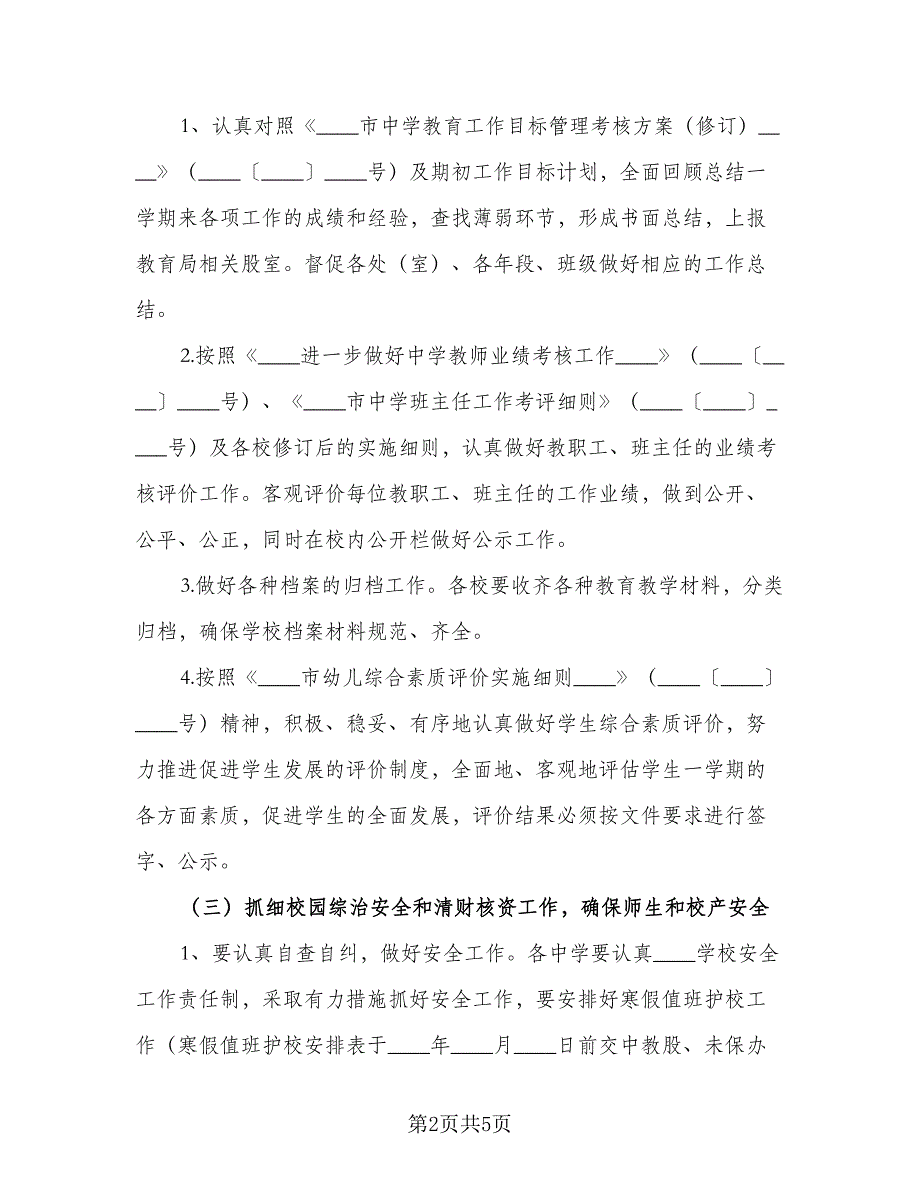 1、认真对照《____市中学教育工作目标管理考核方案（修订）__
__》（____〔____〕____号）及期初工作目标计划，全面回顾总结一
学期来各项工作的成绩和经验，查找薄弱环节，形成书面总结，上报
教育局相关股室。督促各处（室）、各年段、班级做好相应的工作总
结。
2.按照《____进一步做好中学教师业绩考核工作____》（____〔__
__〕____号）、《____市中学班主任工作考评细则》（____〔____〕_
___号）及各校修订后的实施细则，认真做好教职工、班主任的业绩考
核评价工作。客观评价每位教职工、班主任的工作业绩，做到公开、
公平、公正，同时在校内公开栏做好公示工作。
3.做好各种档案的归档工作。各校要收齐各种教育教学材料，分类
归档，确保学校档案材料规范、齐全。
4.按照《____市幼儿综合素质评价实施细则____》（____〔____〕
____号）精神，积极、稳妥、有序地认真做好学生综合素质评价，努
力推进促进学生发展的评价制度，全面地、客观地评估学生一学期的
各方面素质，促进学生的全面发展，评价结果必须按文件要求进行签
字、公示。
（三）抓细校园综治安全和清财核资工作，确保师生和校产安全
1、要认真自查自纠，做好安全工作。各中学要认真____学校安全
工作责任制，采取有力措施抓好安全工作，要安排好寒假值班护校工
作（寒假值班护校安排表于____年____月____日前交中教股、未保办
第2页共5页